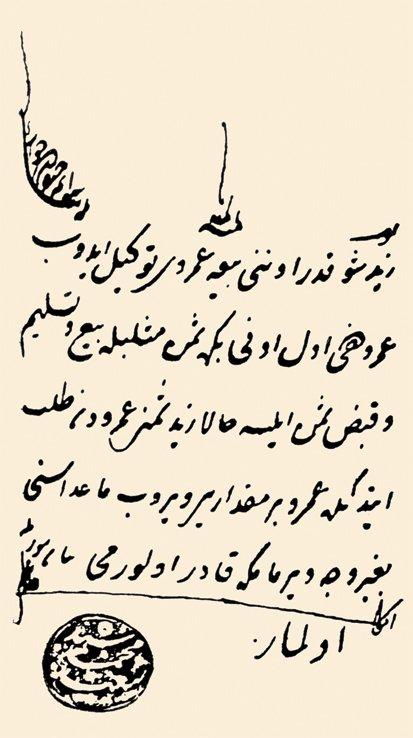 زید شو قدر اوننی بیعه عمروی توکیل ایدوب
عمرو دخی اول اونی بکره ثمن مثلیله بیع و تسلیم
و قبض ثمن ایلسه حالا زید ثمنی عمرودن طلب
ایتدکده عمرو بر مقدارین ویروب ماعداسنی
بغیر وجه ویرمامکه قادر اولورمی
اولماز